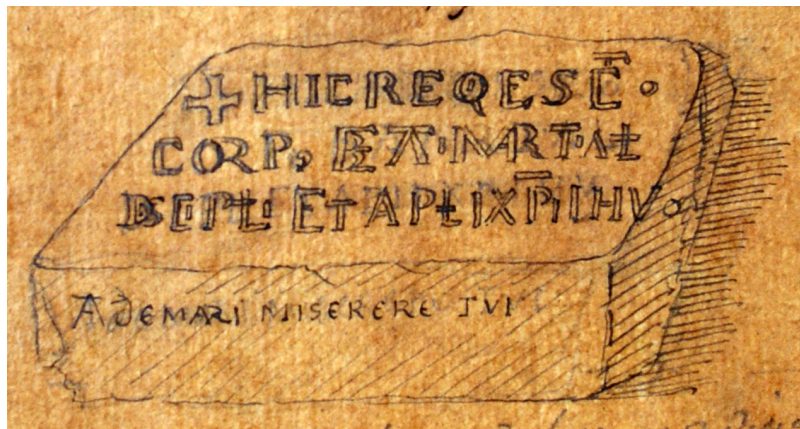 ✝ HIC REQESC̅ •
CORP, BEA MARTIAL
DSCIPLI ET APLI XP̅I IHV •
ADEMARI MISERERE TUI